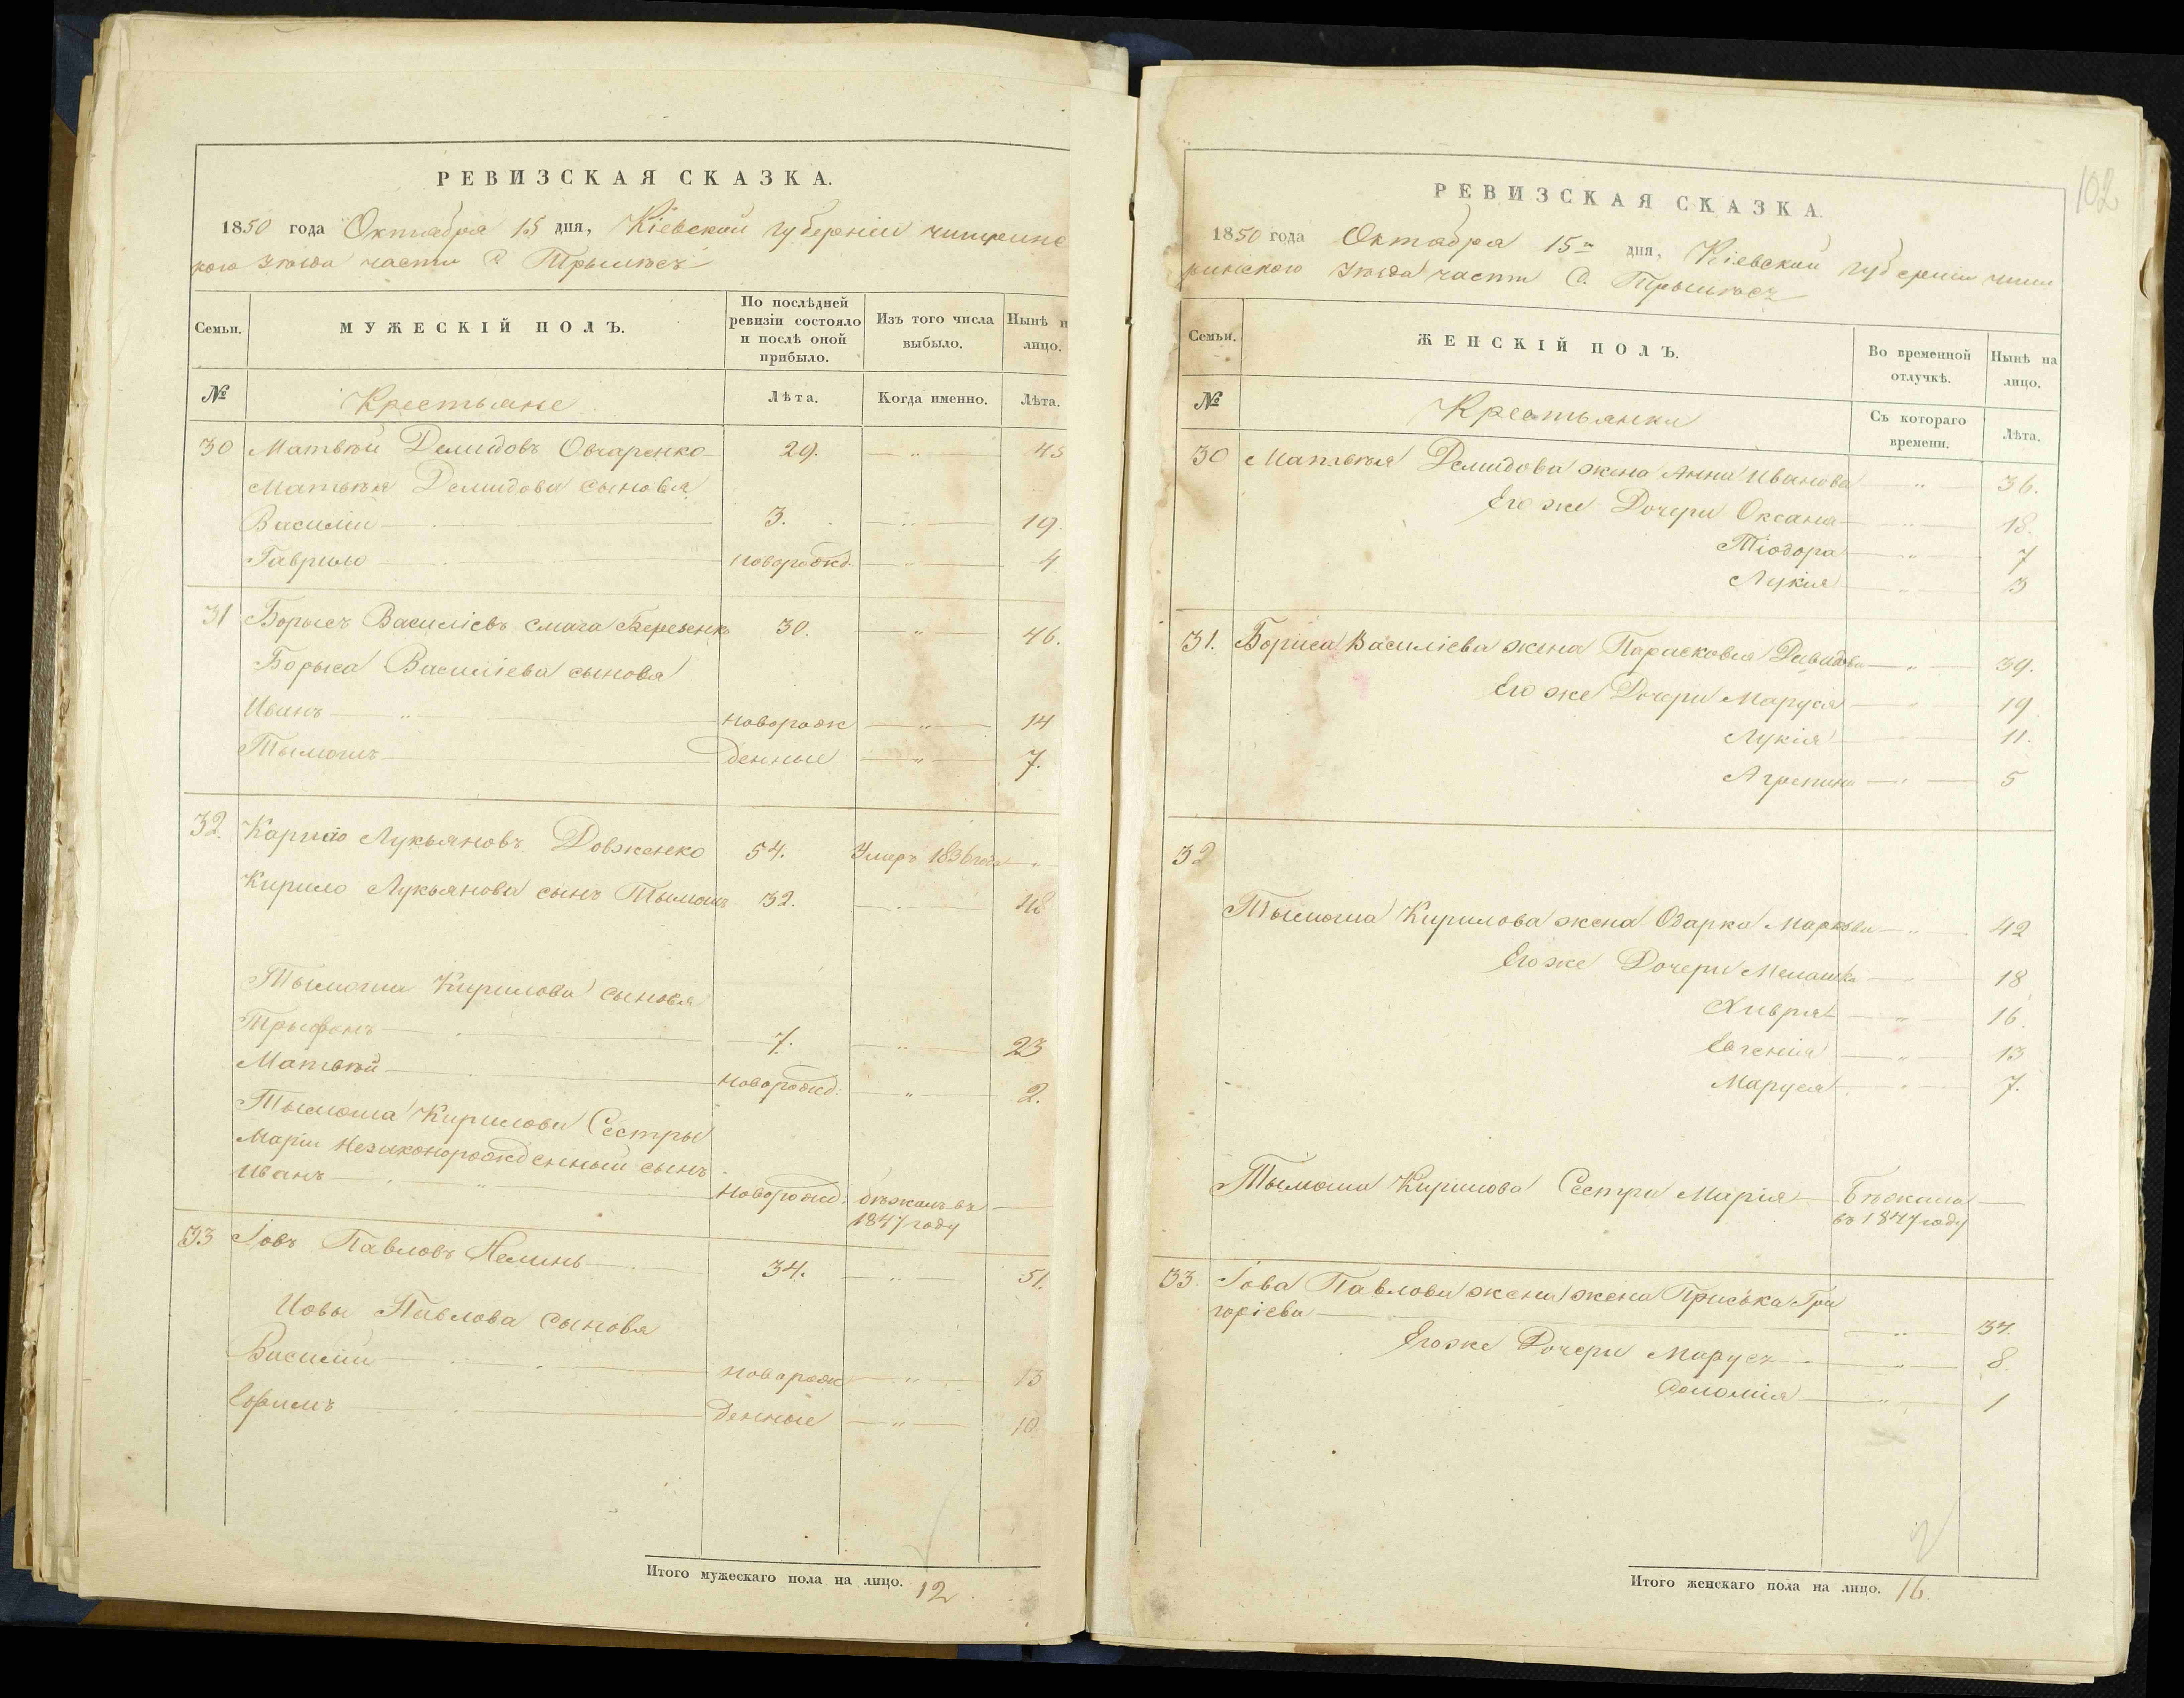 РЕВИЗСКАЯ СКАЗКА.
1850 года Октября 15 дня, Кіевской губерніи чигринс
кого уѣзда части С. Трылѣсъ
Семьи. МУЖЕСКІЙ ПОЛЪ. По послѣдней ревизіи состояло и послѣ оной прибыло. Изъ того числа выбыло. Нынѣ н лицо.
№ Крестьяне Лѣта. Когда именно. Лѣта.
30 Матвѣй Демидовъ Овчаренко 29. — „ — 45
Матвѣя Демидова сыновья
Василій 3. — „ — 19.
Гаврило новорожд. — „ — 4
31 Борысъ Василіевъ Березенко 30. — „ — 46.
Борыса Василіева сыновя
Иванъ новорож — „ — 14
Тымошъ денные — „ — 7.
32. Карпо Лукьяновъ Довженко 54. Умеръ 1836 года „
Кирило Лукьянова сынъ Тымошъ 32. — „ — 48
Тымоша Кирилова сыновя
Трыфонъ 7. — „ — 23
Матвѣй новорожд: — „ — 2.
Тымоша Кирилова Сестры
Маріи незаконорожденный сынъ
Иванъ новорожд: бѣжалъ въ —
1847 году
33 Іовъ Павловъ 34. — „ — 51.
Иовы Павлова сыновя
Василій новорож — „ — 13
Ефимъ денные — „ — 10
Итого мужескаго пола на лицо. 12
102
РЕВИЗСКАЯ СКАЗКА.
1850 года Октября 15 дня, Кіевской губерніи чиги
ринского уѣзда части С. Трылѣсъ
Семьи. ЖЕНСКІЙ ПОЛЪ. Во временной отлучкѣ. Нынѣ на лицо.
№ Крестьянки Съ котораго времени. Лѣта.
30 Матвѣя Демидова жена Анна Иванова — „ — 36.
Его же Дочери Оксана — „ — 18.
Тіодора — „ — 7
Лукія — „ — 3
31. Бориса Василіева жена Парасковія Давидова — „ — 39.
Его же Дочери Маруся — „ — 19
Лукія — „ — 11.
Агрепина — „ — 5
32
Тымоша Кирилова жена Одарка Маркова — „ — 42
Его же Дочери Мелашка — „ — 18
Хивря — „ — 16.
Евгенія — „ — 13
Маруся — „ — 7.
Тымоша Кирилова Сестра Марія Бѣжала —
въ 1847 году
33. Іова Павлова жена жена Приська Гри
горіева — „ — 37.
Его же Дочери Марусъ — „ — 8
Соломія — „ — 1
Итого женскаго пола на лицо. 16.